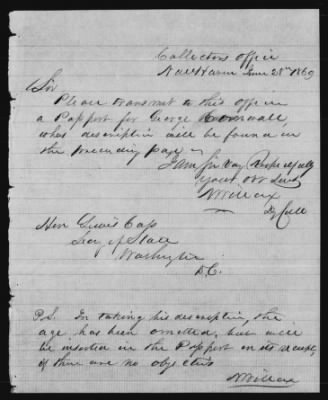 Collectors Office
New Haven June 28th 1860
Sir
Please transmit to this office
a Passport for George Cornwall
whos description will be found in
the preceeding page
I am Sir Very Respectfully
Your Obt Servt
Willcox
Dy Coll
Hon Lewis Cass
Secy of State
Washington
D.C.
P.S. In taking his description, the
age has been omitted, but will
be inserted in the Passport on its receipt,
if there are no objections
Willcox